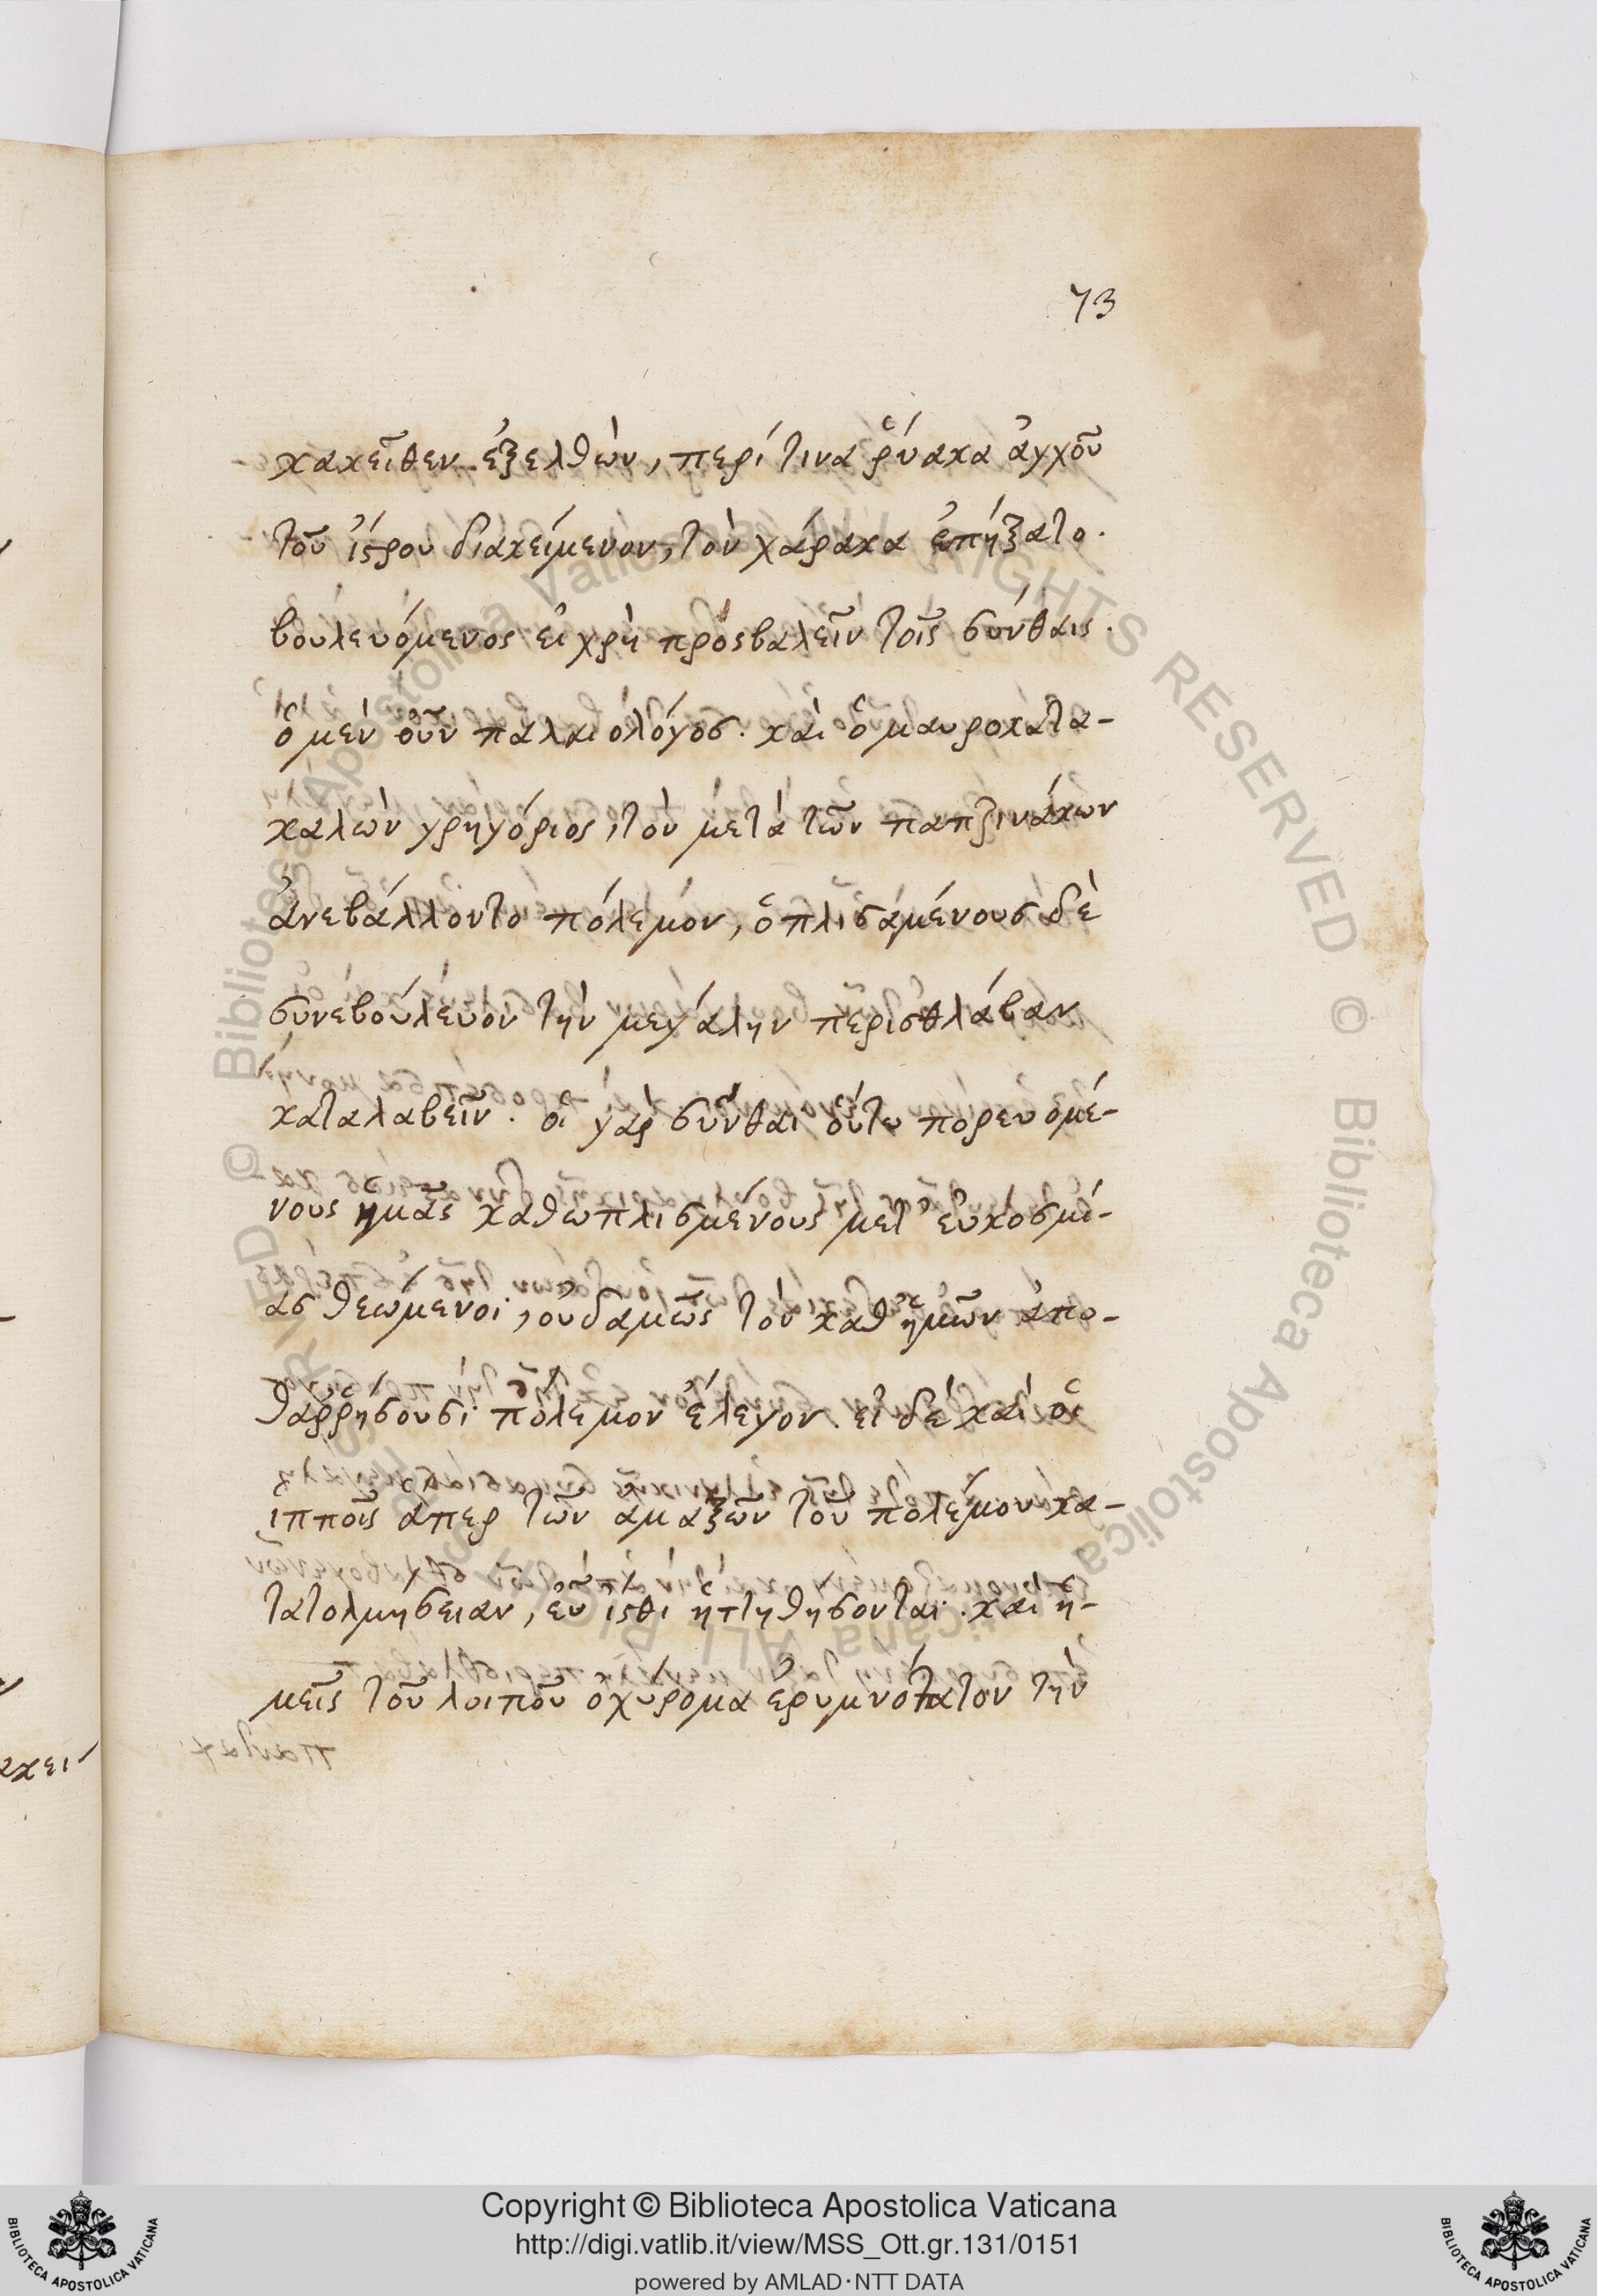 73
κακεῖθεν ἐξελθών, περί τινα ῥύακα ἀγχοῦ
τοῦ ἴςρου διακείμενον, τὸν χάρακα ἐπήξατο.
βουλευόμενος εἰ χρὴ πρόςβαλεῖν τοῖς σύνθαις.
ὁ μὲν οὖν παλαιολόγος. καὶ ὁ μαυροκατα-
καλὼν γρηγόριος, τὸν μετὰ τῶν πατζινάκων
ἀνεβάλλοντο πόλεμον, ὁπλισάμένους δὲ
συνεβούλευον τὴν μεγάλην περισθλάβαν
καταλαβεῖν. οἱ γάρ σύνθαι οὕτω πορευομέ-
νους ἡμᾶς καθωπλισμένους μετ' εὐκοσμί-
ας θεώμενοι, οὐδαμῶς τὸν καθ' ἡμῶν ἀπο-
θαῤῥήσουσι πόλεμον ἔλεγον. εἰ δὲ καὶ οἱ
ἱπποῖς ἄπερ τῶν ἁμαξῶν τοῦ πολέμου κα-
τατολμήσειαν, εὖ ἴςθι ἡττηθήσονται. καὶ ἡ-
μεῖς τοῦ λοιποῦ ὀχύρομα ἐρυμνότατον τὴν
ακει
Copyright © Biblioteca Apostolica Vaticana
http://digi.vatlib.it/view/MSS_Ott.gr.131/0151
powered by AMLAD·NTT DATA
BIBLIOTECA APOSTOLICA VATICANA
BIBLIOTECA APOSTOLICA VATICANA